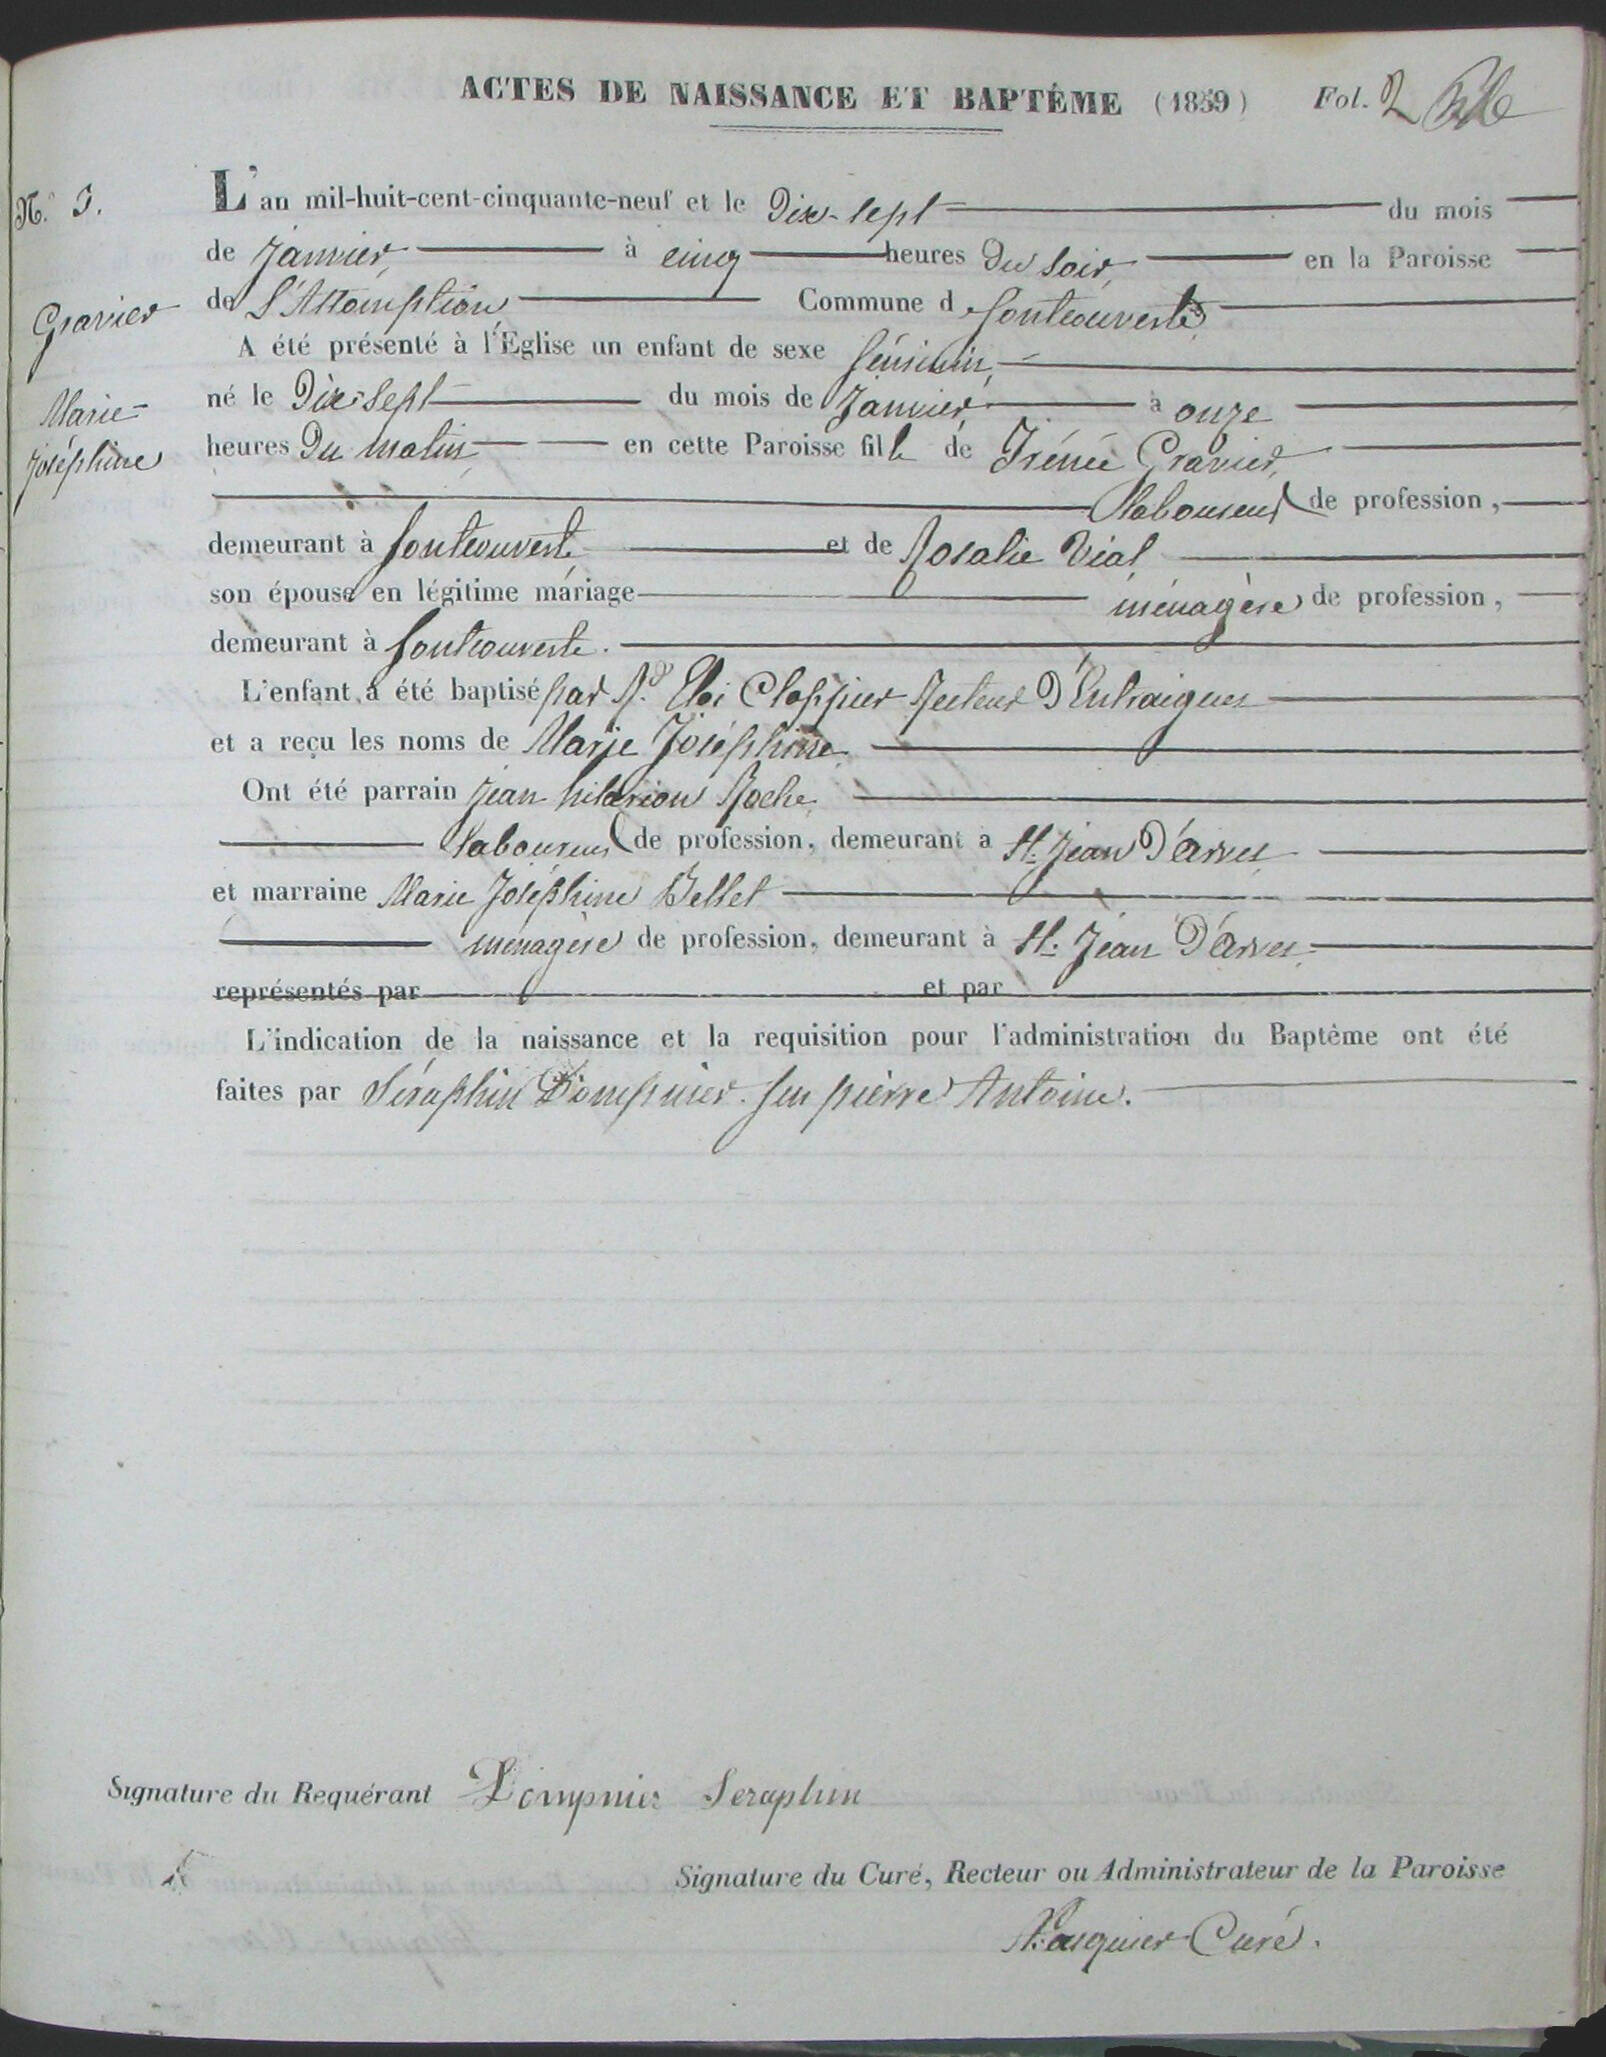 ACTES DE NAISSANCE ET BAPTÊME (1859) Fol. 2
N.° 3.
L'an mil-huit-cent-cinquante-neuf et le Dix-sept du mois
de janvier à cinq heures Du soir en la Paroisse
Gravier
de L'Assomption Commune d fontcouverte
A été présenté à l'Église un enfant de sexe féminin
Marie-
né le Dix-sept du mois de Janvier à onze
Joséphine
heures Du matin en cette Paroisse fille de Irénée Gravier,
laboureur de profession,
demeurant à fontcouverte et de Rosalie Vial
son épouse en légitime mariage ménagère de profession,
demeurant à fontcouverte.
L'enfant a été baptisé par Rd Eloi Clappier Recteur D'Entraigues
et a reçu les noms de Marie Joséphine
Ont été parrain jean hilarion Roche
laboureur de profession, demeurant à St. Jean D'arves
et marraine Marie Joséphine Bellet
ménagère de profession, demeurant à St. Jean D'arves
représentés par et par
L'indication de la naissance et la requisition pour l'administration du Baptême ont été
faites par Séraphin Dompnier feu pierre Antoine.
Signature du Requérant Dompnier Seraphin
Signature du Curé, Recteur ou Administrateur de la Paroisse
Pasquier Curé.